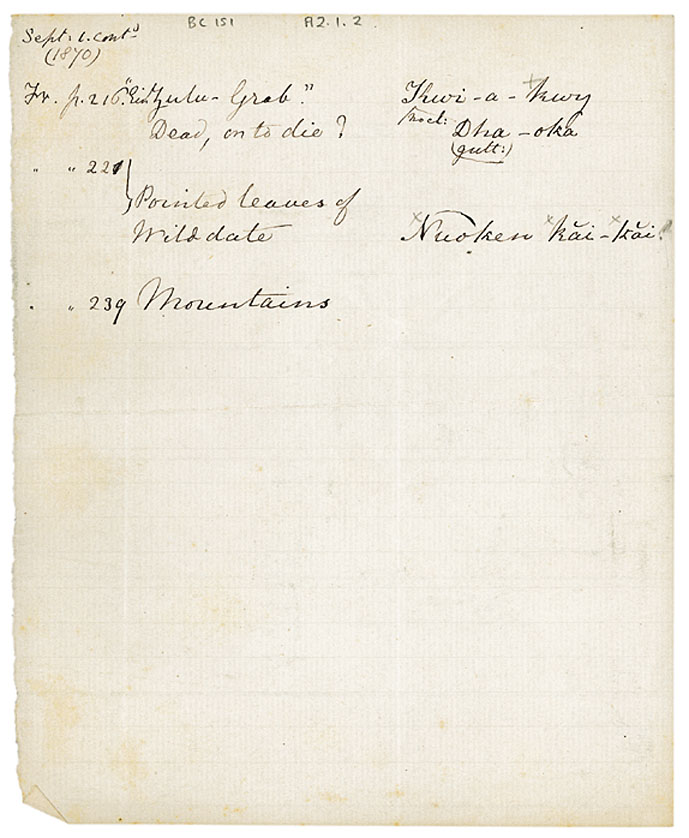 BC 151 A2.1.2.
Sept: 1. cont^d
(1870)
Fr. p. 216. "Ein Zulu-Grab." Ikwi-a-kwy
Dead, or to die? Dha-oka
(gutt:)
" " 221
Pointed leaves of
Wild date Nuoken kăi-kăi!
" " 239 Mountains